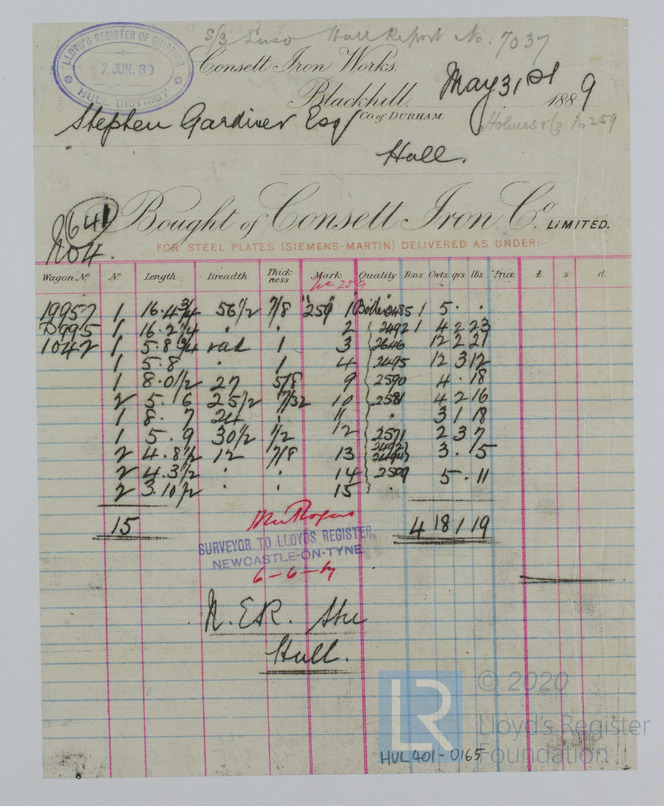 S/S Hull Report No: 7037
LLOYD'S REGISTER OF SHIPPING
7 JUN. 89
HULL DISTRICT
Consett Iron Works.
Blackhill.
Co. of DURHAM.
May 31st 1889
Holmes No 259
Stephen Gardiner Esq
Hull.
641
No 4.
Bought of Consett Iron Co. LIMITED.
FOR STEEL PLATES (SIEMENS-MARTIN) DELIVERED AS UNDER:—
Wagon No. No. Length Breadth Thickness Mark Quality Tons Cwts qrs. lbs. Price £ s. d.
19957 1 16.4 3/4 56 1/2 7/8 "259" 1 Boiler 2485 1 5 . .
D9995 1 16.2 1/4 " " 2 2492 1 4 2 23
1042 1 5.8 3/4 rad 1 3 2646 12 2 21
1 5.8 . 1 4 2495 12 3 12
1 8.0 1/2 27 5/8 9 2590 4 . 18
2 5. 6 25 1/2 7/32 10 2581 4 2 16
1 8. 7 24 " 11 " 3 1 18
1 5. 9 30 1/2 1/2 12 2571 2 3 7
2 4.8 1/2 12 7/8 13 3 . 15
2 4.3 1/2 " " 14 2509 5 . 11
2 3.10 1/2 " " 15 "
15 4 18 1 19
SURVEYOR TO LLOYD'S REGISTER,
NEWCASTLE-ON-TYNE.
N.E.R. Stn
Hull.
LR
© 2020
Lloyd's Register
Foundation
HUL401-0165